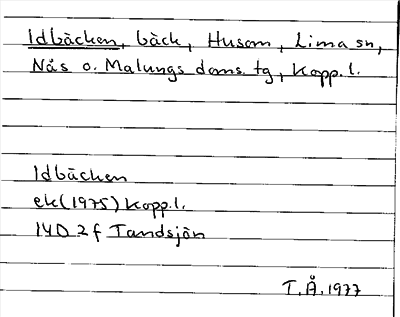 Idbäcken, bäck, Husom, Lima sn,
Nås o. Malungs doms. tg, Kopp. l.
Idbäcken
ek(1975) Kopp.l.
14D 2f Tandsjön
T.Å.1977